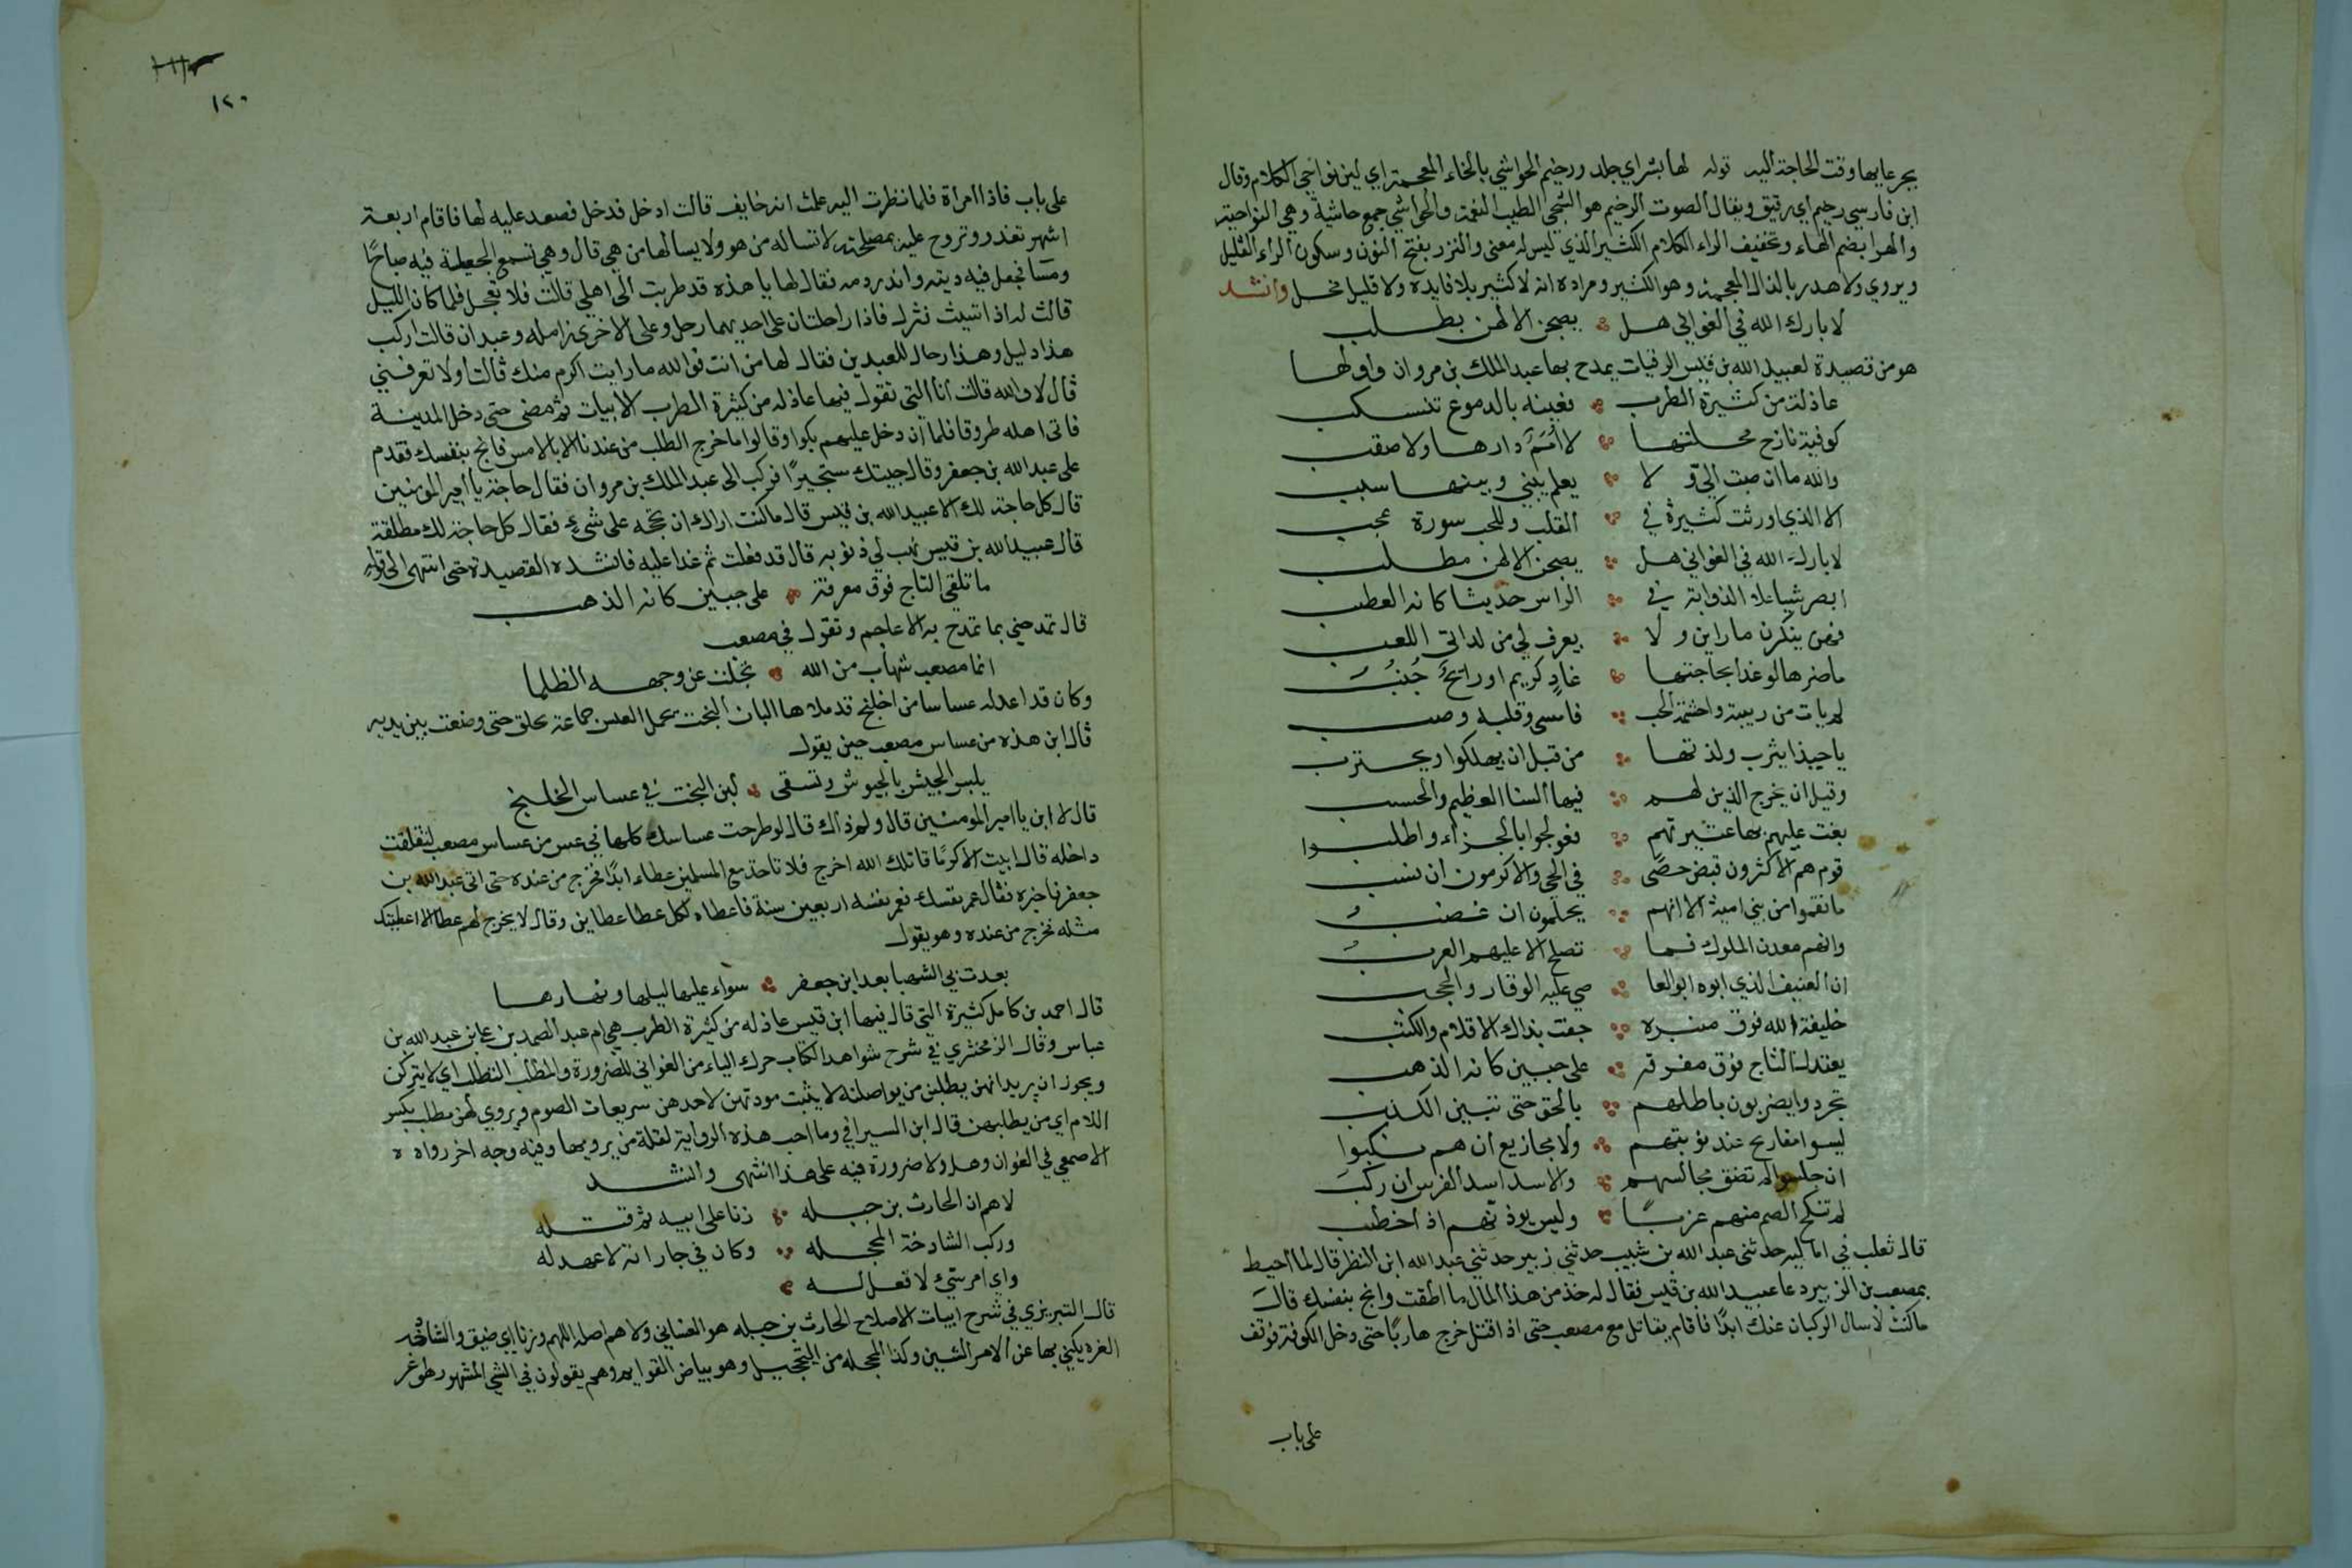 يجر عابها وقت الحاجة اليه قوله لها بشر اي جلد ورخيم الحواشي بالخاء المعجمة اي لين نواحي الكلام وقال
ابن فارسي رخيم اي رقيق ويقال الصوت الرخيم هو الشجي الطيب النغمة والحواشي جمع حاشية وهي النواحية
والهرا بضم الهاء وتخفيف الراء الكلام الكثير الذي ليس له معنى والنزر بفتح النون وسكون الراء القليل
ويروي ولا هذر بالذال المعجمة وهو الكثير ومراده انه لا كثير بلا فايدة ولا قليل مخل وانشد
لا بارك الله في الغواني هل يصبحن الا لهن بطلب
هو من قصيدة لعبيد الله بن قيس الرقيات يمدح بها عبد الملك بن مروان واولها
عاذلة من كثيرة الطرب فعينه بالدموع تنسكب
كوفية نازح محلتها لا أمم دارها ولا صقب
والله ما ان صبت الي و لا يعلم بيني وبينها سبب
الا الذي اورثت كثيرة في القلب وللحب سورة عجب
لا بارك الله في الغواني هل يصبحن الا لهن مطلب
ابصر شيبا علا الذوابة في الراس حديثا كانه العطب
فهن ينكرن ما راين و لا يعرف لي من لداتي اللعب
ما ضرها لو غدا بحاجتها غاد كريم او رائح جنب
لم يات من ريبة واحشمة الحب فامسى وقلبه وصب
يا حبذا يثرب ولذتها من قبل ان يهلكوا ويحترب
وقبل ان يخرج الذين لهم فيها السنا العظيم والحسب
بغت عليهم بها عشيرتهم فعولجوا بالجزاء واطلبوا
قوم هم الاكثرون قبض حصى في الحي والاكرمون ان نسب
ما نقموا من بني امية الا انهم يحلمون ان غضب
وانهم معدن الملوك فما تصلح الا عليهم العرب
ان العنيف الذي ابوه ابو العا صي عليه الوقار والحجب
خليفة الله فوق منبره جفت بذاك الاقلام والكتب
يعتدل التاج فوق مفرقه على جبين كانه الذهب
تجردوا يضربون باطلهم بالحق حتى تبين الكذب
ليسوا مفاريح عند نوبتهم ولا مجازيع ان هم نكبوا
ان جلسوا لم تضق مجالسهم والاسد اسد الفرس ان ركب
لم تنكح الصم منهم عزبا وليس يوذ تهم اذا خطب
قال ثعلب في اماليه حدثني عبد الله بن شبيب حدثني زبير حدثني عبد الله ابن النظر قال لما احيط
بمصعب بن الزبير دعا عبيد الله بن قيس فقال له خذ من هذا المال ما اطقت وانج بنفسك قال
ما كنت لاسال الركبان عنك ابدا فاقام يقاتل مع مصعب حتى اذا قتل خرج هاربا حتى دخل الكوفة فوقف
على باب
١٢٠
على باب فاذا امراة فلما نظرت اليه علمت انه خايف قالت ادخل فدخل فصعد عليه لها فاقام اربعة
اشهر تغدو وتروح عليه بمصلحته لا تساله من هو ولا يسالها من هي قال وهي تسمع الجعالة فيه صباحا
ومسا تجعل فيه ديته واندر ومه فقال لها يا هذه قد طربت الى اهلي قالت فلا تعجل فلما كان الليل
قالت له اذا شيت نزل فاذا راحلتان على احديهما رحل وعلى الاخرى زامله وعبدان قالت اركب
هذا دليل وهذا رحال للعبدين فقال لها من انت فوالله ما رايت اكرم منك قالت اولا تعرفني
قال لا والله قالت انا التي تقول فيها عاذله من كثيرة الطرب الابيات ثم مضى حتى دخل المدينة
فاتى اهله طروقا فلما ان دخل عليهم بكوا وقالوا ما خرج الطلب من عندنا الا بالامس فانج بنفسك فقدم
على عبد الله بن جعفر وقال جيتك مستجيرا فركب الى عبد الملك بن مروان فقال حاجة يا امير المومنين
قال كل حاجة لك الا عبيد الله بن قيس قال ما كنت اراك ان تحجه على شيء فقال كل حاجة لك مطلقة
قال عبيد الله بن قيس تهب لي ذنوبه قال قد فعلت ثم غدا عليه فانشده القصيدة حتى انتهى الى قوله
ما تلقى التاج فوق معرفة على جبين كانه الذهب
قال تمدحني بما تمدح به الاعاجم وتقول في مصعب
انما مصعب شهاب من الله تجلت عن وجهه الظلما
وكان قد اعد له عساسا من اخلنج قد ملاها البان البخت يحمل العس جماعة بحلق حتى وضعت بين يديه
قال ابن هذه من عساس مصعب حين يقول
يلبس الجيش بالجيوش وتسقى لبن البخت في عساس الخلنج
قال لا ابن يا امير المومنين قال ولم ذاك قال لو طرحت عساسك كلها في عس من عساس مصعب لتقلقت
داخله قال ابيت الا كرما قاتلك الله اخرج فلا تاخذ مع المسلمين عطاء ابدا فخرج من عنده حتى اتى عبد الله بن
جعفر فاخبره فقال عمر نفسك فعمر نفسه اربعين سنة فاعطاه لكل عطا عطاين وقال لا يخرج لهم عطا الا اعطيتك
مثله فخرج من عنده وهو يقول
بعدت بي الشهبا بعد ابن جعفر سواء عليها ليلها ونهارها
قال احمد بن كامل كثيرة التي قال فيها ابن قيس عاذله من كثيرة الطرب هي ام عبد الصمد بن علي بن عبد الله بن
عباس وقال الزمخشري في شرح شواهد الكتاب حرك الياء من الغواني للضرورة والمطلب التطلب اي لا يتركن
ويجوز ان يريد انهن يطلبن من يواصلنه لا يثبت مودتهن لاحد هن سريعات الصوم ويروي لهن مطلب بكسر
اللام اي من يطلبهن قال ابن السيرافي وما احب هذه الرواية لقلة من يرويها وفيه وجه اخر رواه
الاصمعي في الغوان وهل ولا ضرورة فيه على هذا انتهى وانشد
لا هم ان الحارث بن جبله زنا على ابيه ثم قتله
وركب الشادخة المحجله وكان في جاراته لا عهد له
واي امر سيئ لا فعله
قال التبريزي في شرح ابيات الاصلاح الحارث بن جبله هو الغساني ولا هم اصله اللهم وزنا اي ضيق والشادخه
الغره يكني بها عن الامر الشين وكذا المحجله من التحجيل وهو بياض القوايم وهم يقولون في الشي المشهور هو غر